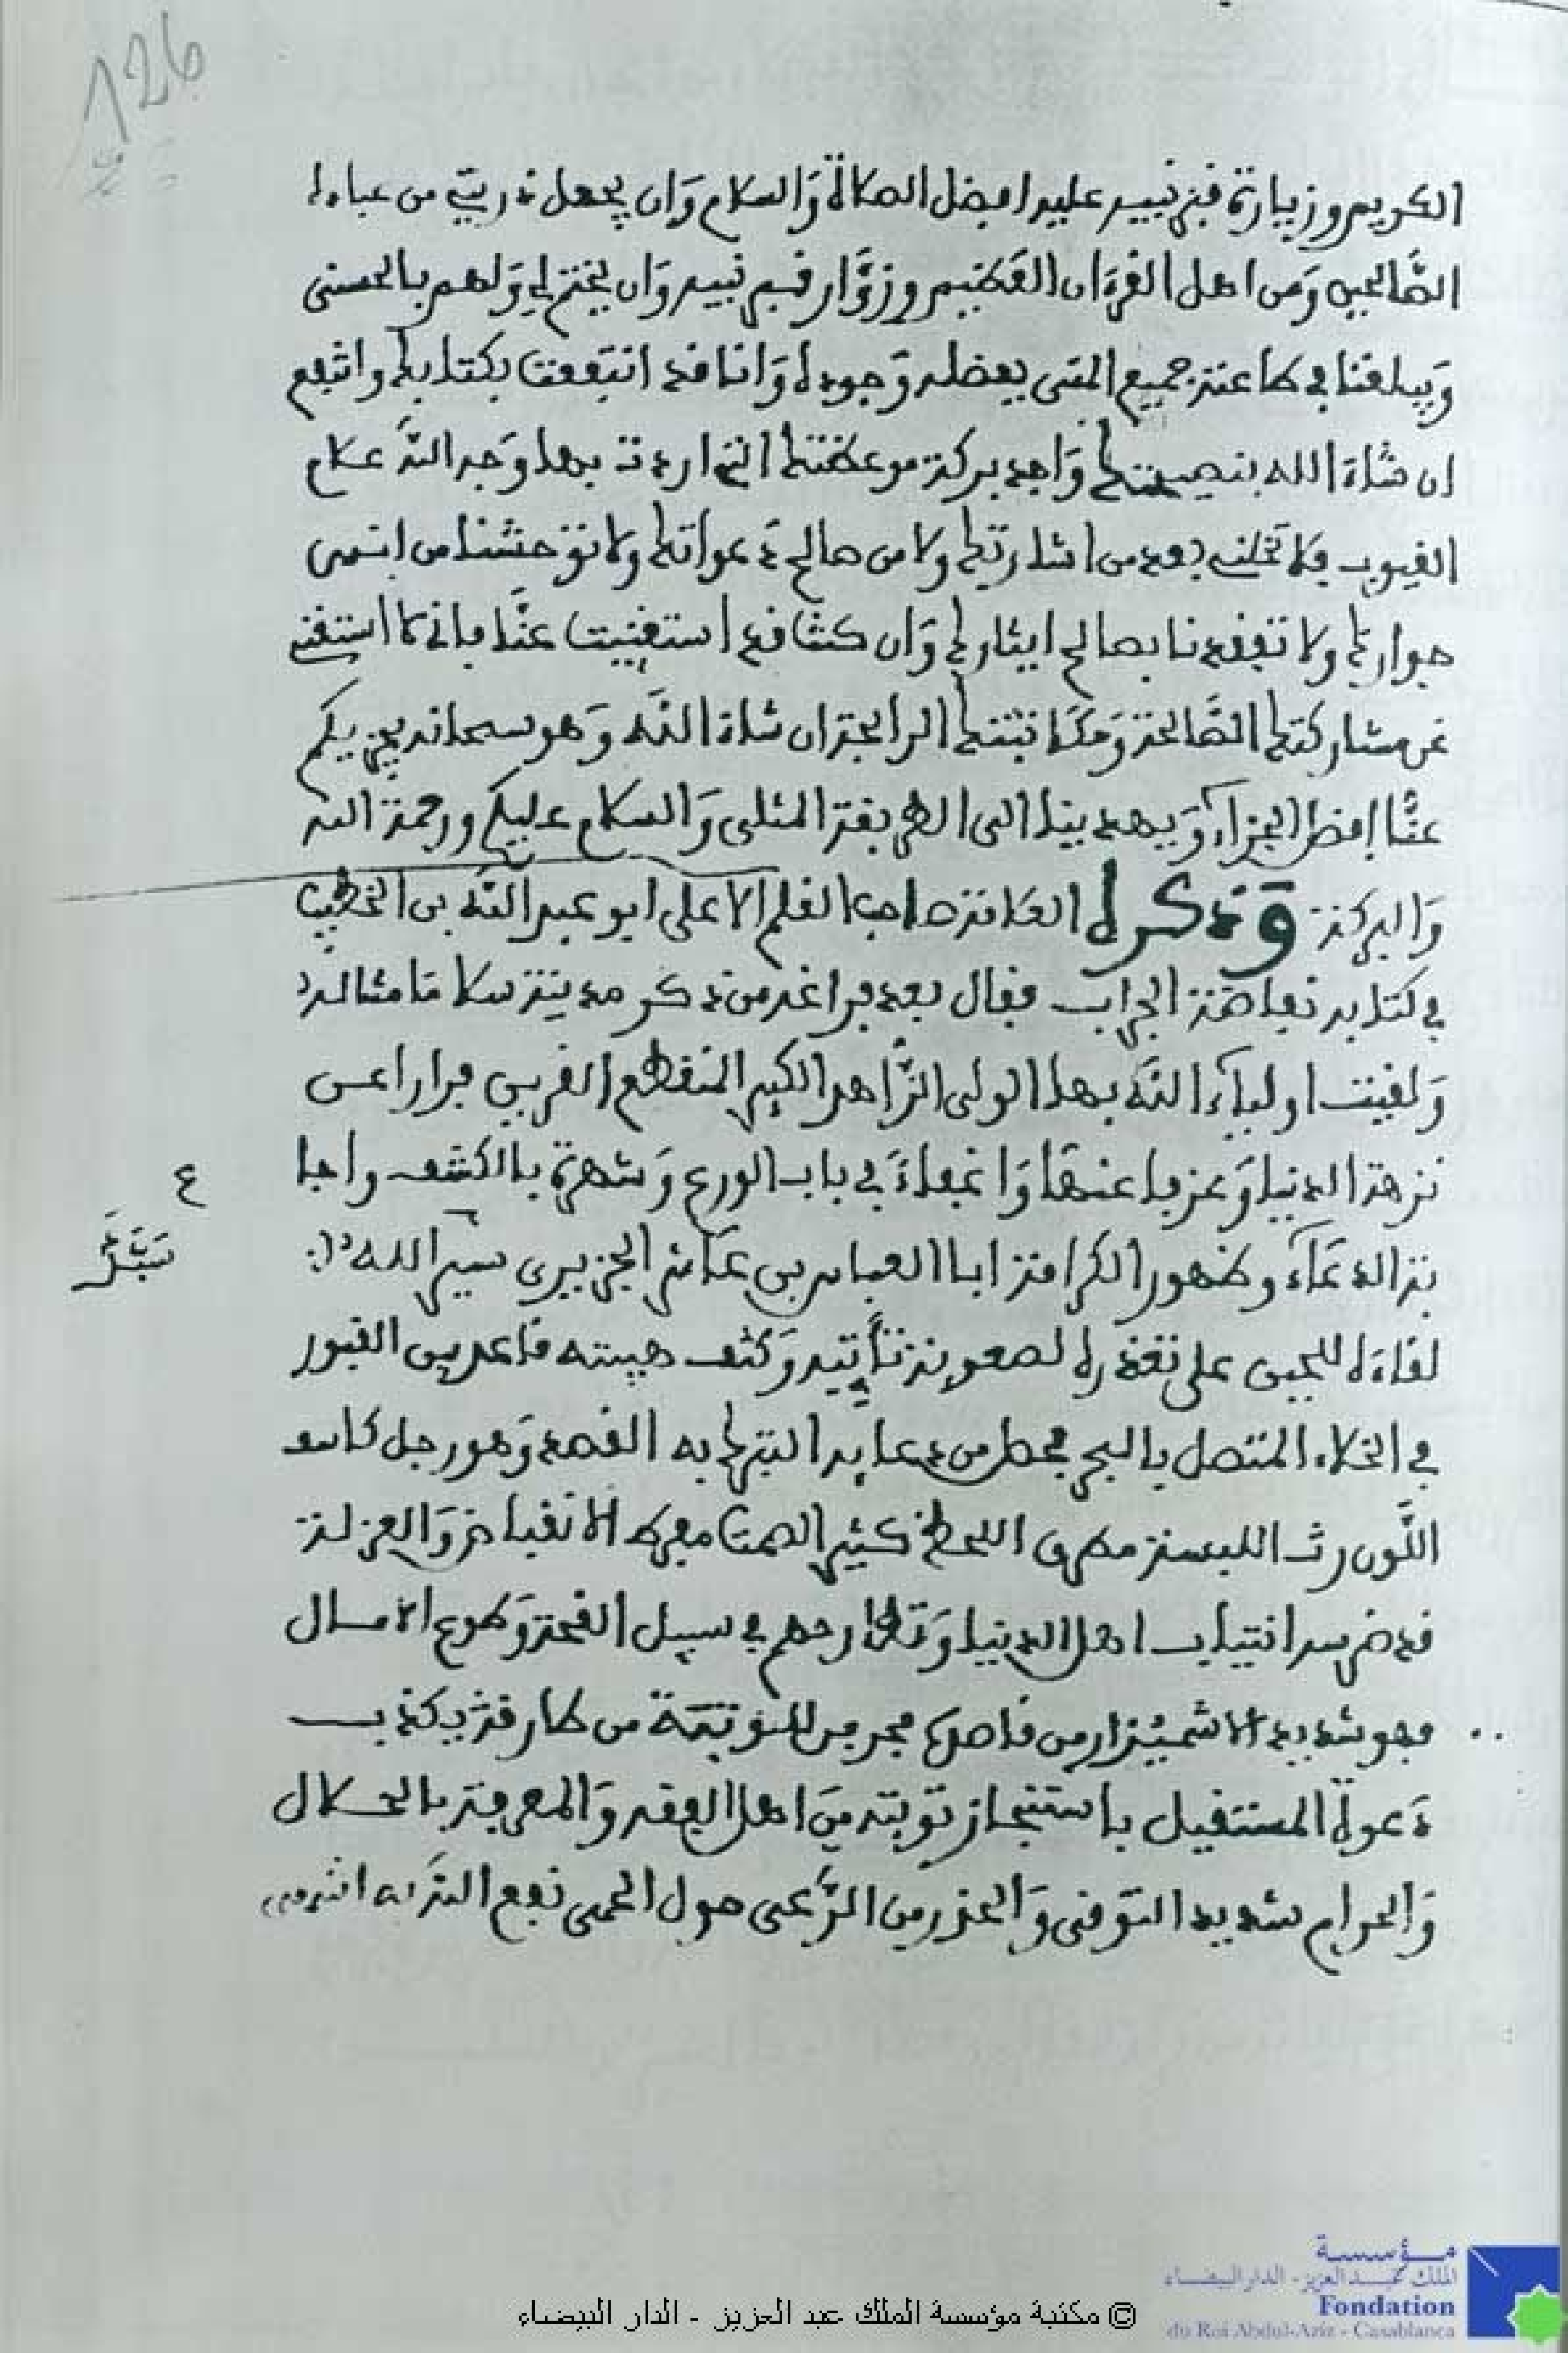 126
الكريم وزيارة قبر نبيه عليه افضل الصلاة وَالسلام وَان يجعل ذريتي من عباده
الصَّالحين وَمن اهل القرءَان العَظيم وزوَّار قبر نبيه وَان يختم لي وَلهم بالحسنى
وَيبلغنا في طاعته جميع المنى بفضله وَجوده وَانا قد انتفعت بكتابكم وانتفع
ان شاءَ الله بنصيحتكم وَاجد بركة موعظتكم التي اردت بها وَجه اللَّه علام
الغيوب فلا تخلني بعد من اشارتكم ولا من صالح دَعواتكم ولا توحشنا من انسى
جواركم ولا تفقدنا صالح ايثاركم وَان كنت قد استغنيت عنَّا فانه لا استغنى
عن مشاركتكم الصَّالحة وَمكَاتبتكم الرابحة ان شاءَ اللَّه وَهو سبحانه يجزيكم
عنَّا افضل الجزآء وَيهدينا الى الطريقة المثلى وَالسلام عليكم ورحمة الله
وَالبركة وَذكره العَلامة صاحب القلم الاعلى ابو عبد اللَّه بن الخطيب
في كتابه نفاضة الجراب فقال بعد فراغه من ذكر مدينة سلا مَا مثاله
وَلقيت اولياءَ اللَّه بها الولى الزَّاهد الكبير المنقطع القرين فرارا عن
زهرة الدنيا وَعزوبا عنهَا وَاغيَاءً في باب الورع وَشهرة بالكشف واجا
بة الدعَاءَ وظهور الكرامة ابا العباس بن عَاشر الجزيري يسر الله
ع
لقاءَه للجين على تعذره لصعوبة تأتيه وَكثف هيبته قاعد بين القبور
في الخلاء المتصل بالبحر بمحل من دعابه التبرك به القصد وَهو رجل كاسف
اللَّون رث اللبسة مطرق اللحظ كثير الصمت مفرط الانقباض وَالعزلة
قد ضرسه انتياب اهل الدنيا وَتطارحهم في سبيل القحة وَطوع الامـال
فهو شديد الاشمئزاز من قاصده مجرمز للوثبة من طارقة يكذب
دَعوة المستقيل باستنجاز توبته من اهل الفقه وَالمعرفة بالحـلال
وَالحرام شديد التوقى وَالحذر من الرَّعى حول الحمى نفع اللَّه به
مؤسسة
الملك عبد العزيز - الدار البيضاء
Fondation
du Roi Abdul-Aziz - Casablanca
© مكتبة مؤسسة الملك عبد العزيز - الدار البيضاء